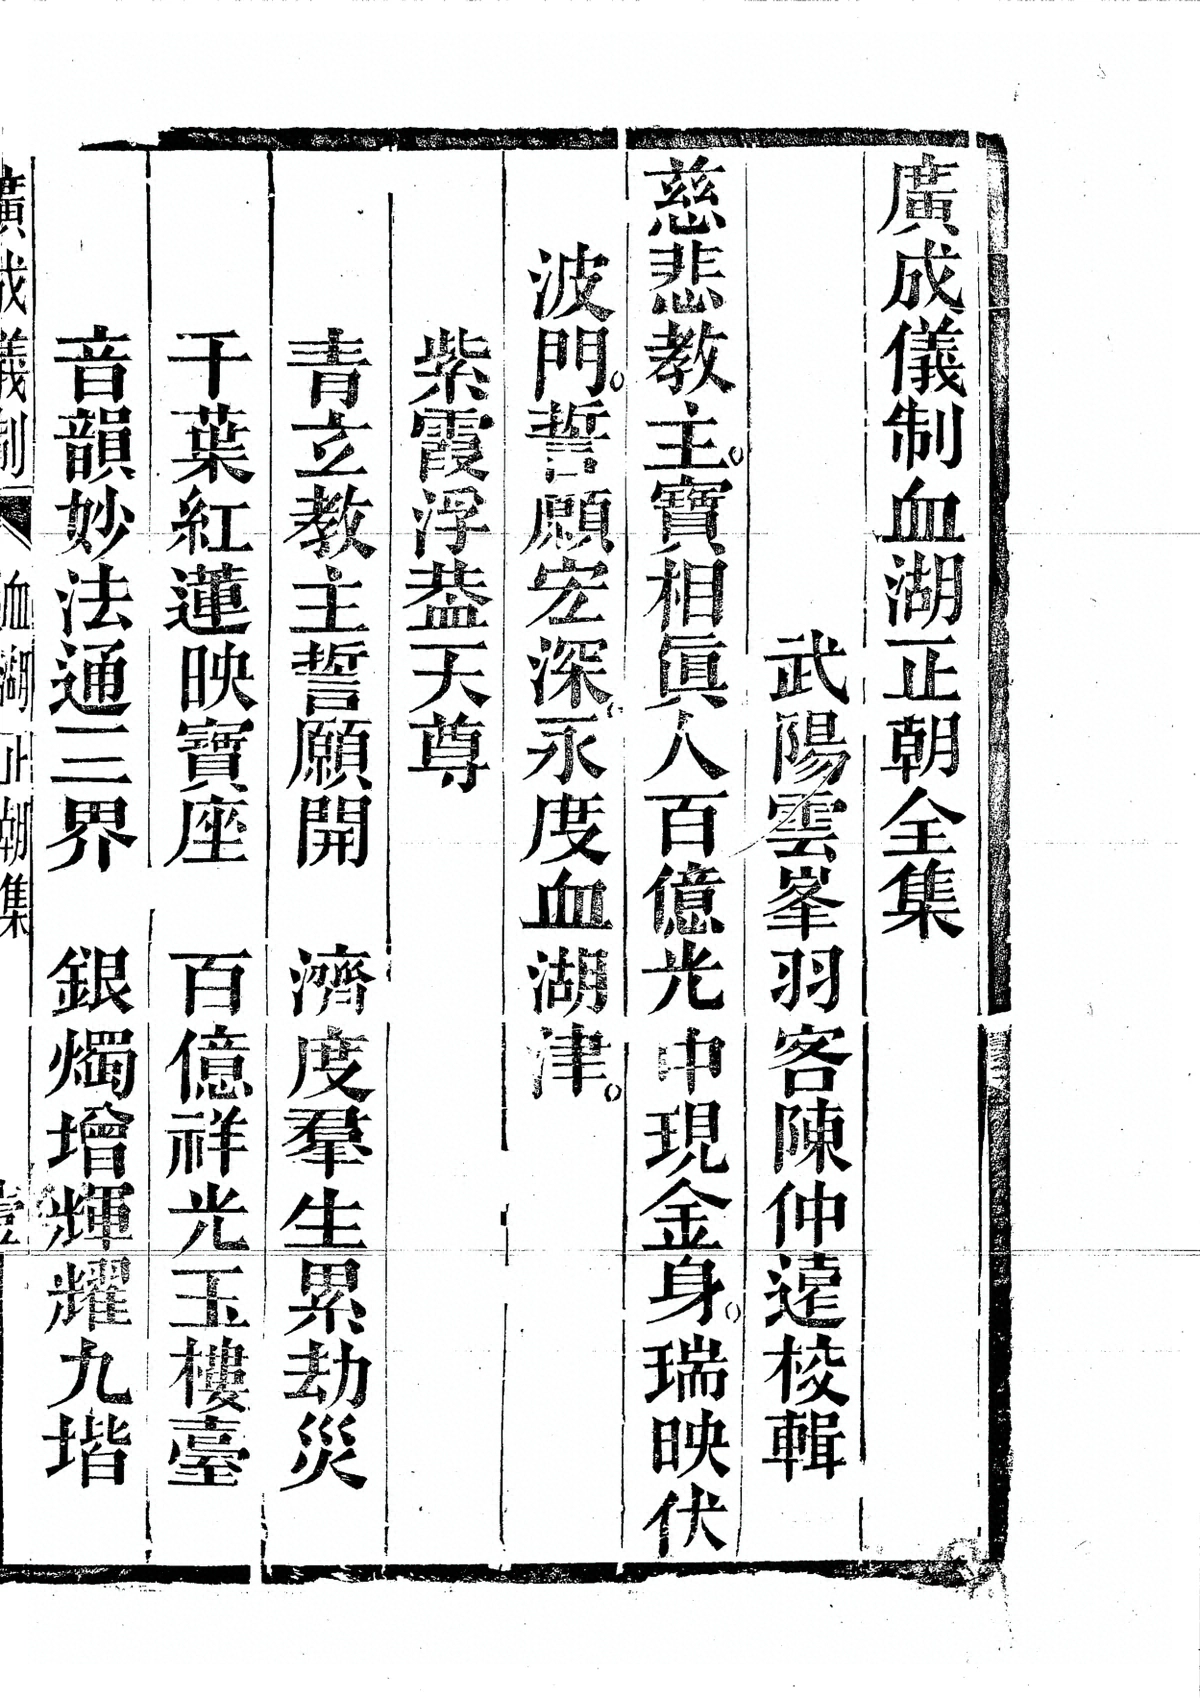 廣成儀制血湖正朝全集
武陽雲峯羽客陳仲遠校輯
慈悲教主。寶相眞人百億光中現金身。瑞映伏
波門。誓願宏深。永度血湖津。
紫霞浮葢天尊
青玄教主誓願開　濟度羣生累劫災
千葉紅蓮映寶座　百億祥光玉樓臺
音韻妙法通三界　銀燭增輝耀九堦
廣成儀制　血湖正朝集　壹